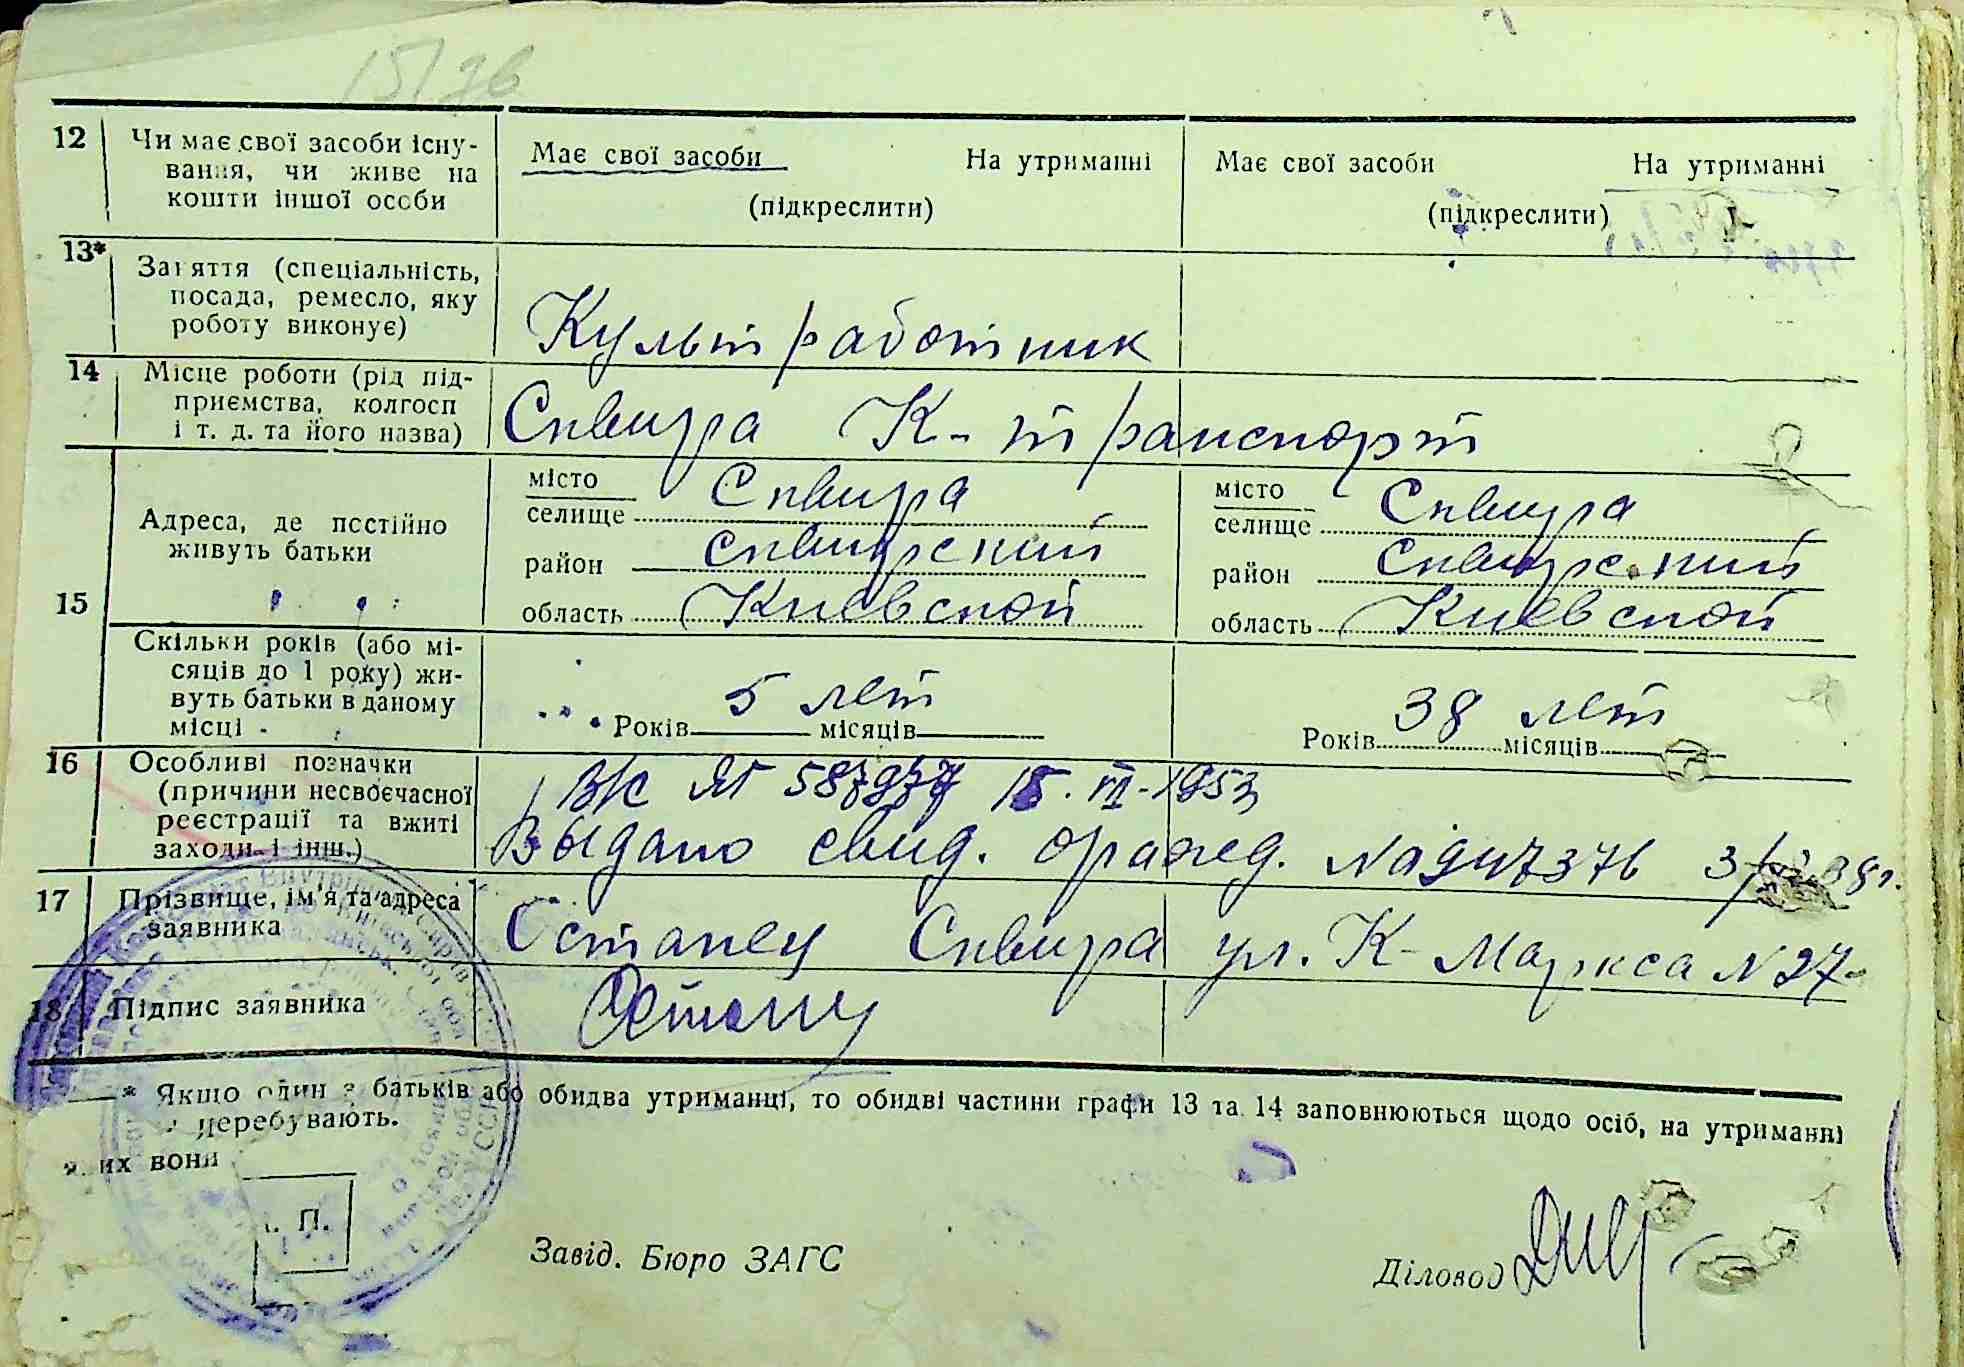 12 Чи має свої засоби існу-
вання, чи живе на
кошти іншої особи
Має свої засоби На утриманні
(підкреслити)
Має свої засоби На утриманні
(підкреслити)
13* Заняття (спеціальність,
посада, ремесло, яку
роботу виконує)
Культработник
14 Місце роботи (рід під-
приємства, колгосп
і т. д. та його назва)
Сквира К-транспорт
15 Адреса, де постійно
живуть батьки
місто Сквира
селище
район Сквирский
область Киевской
місто Сквира
селище
район Сквирский
область Киевской
Скільки років (або мі-
сяців до 1 року) жи-
вуть батьки в даному
місці
5 лет
Років місяців
38 лет
Років місяців
16 Особливі позначки
(причини несвоєчасної
реєстрації та вжиті
заходи і інш.)
1953
Выдано свид. о ражед. №
17 Прізвище, ім'я та адреса
заявника
Остапец Сквира ул. К-Маркса N 27
18 Підпис заявника
* Якщо один з батьків або обидва утриманці, то обидві частини графи 13 та 14 заповнюються щодо осіб, на утриманні
яких вони перебувають.
П.
Завід. Бюро ЗАГС
Діловод